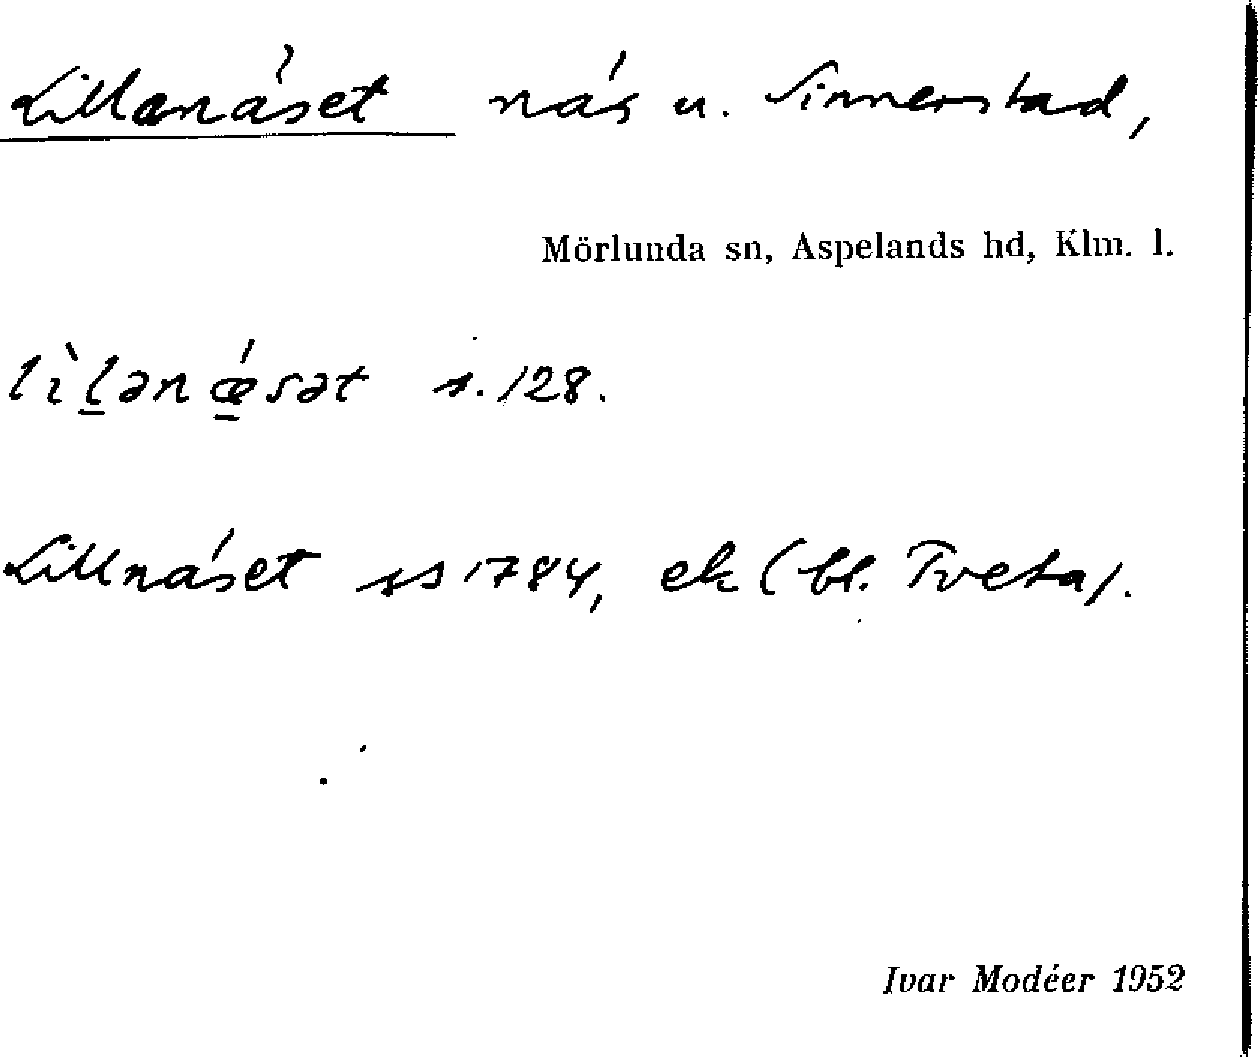 Lillanäset näs u. Sinnerstad,
Mörlunda sn, Aspelands hd, Klm. l.
lìḻənǽ̱sət s. 128.
Lillnäset ss 1784, ek (bl. Tveta).
Ivar Modéer 1952